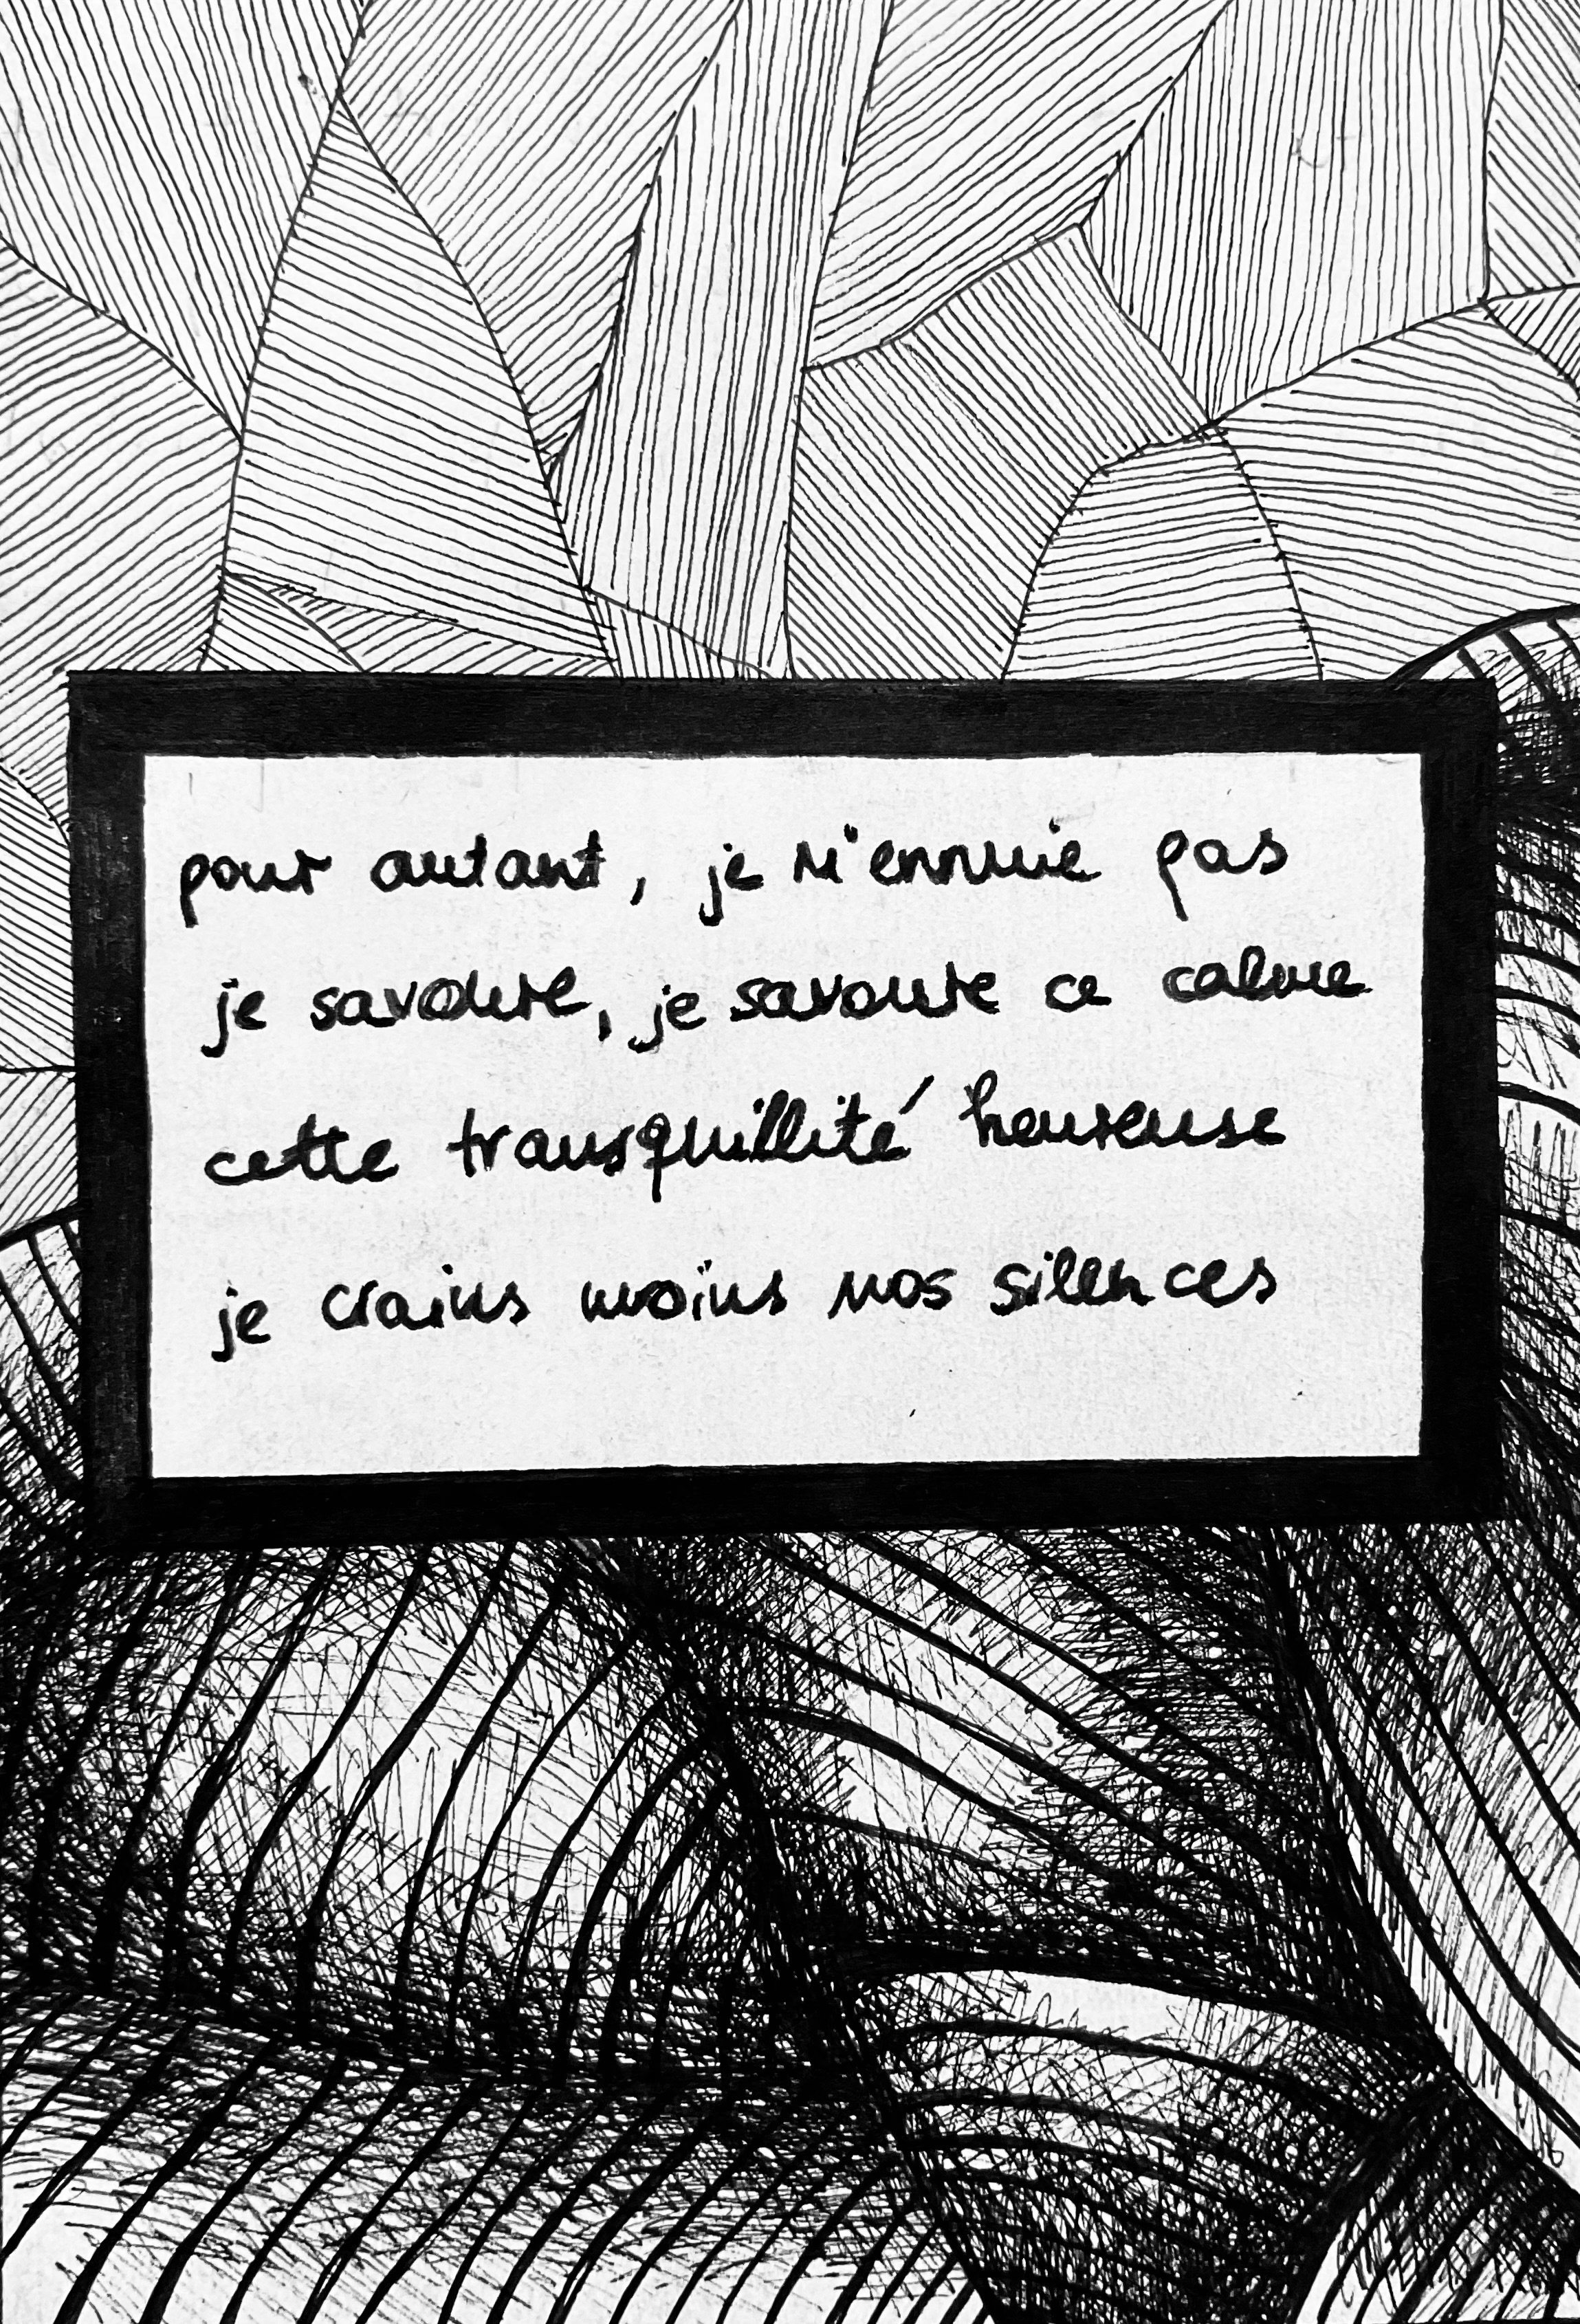 pour autant, je m'ennuie pas
je savoure, je savoure ce calme
cette transquillité heureuse
je crains moins nos silences